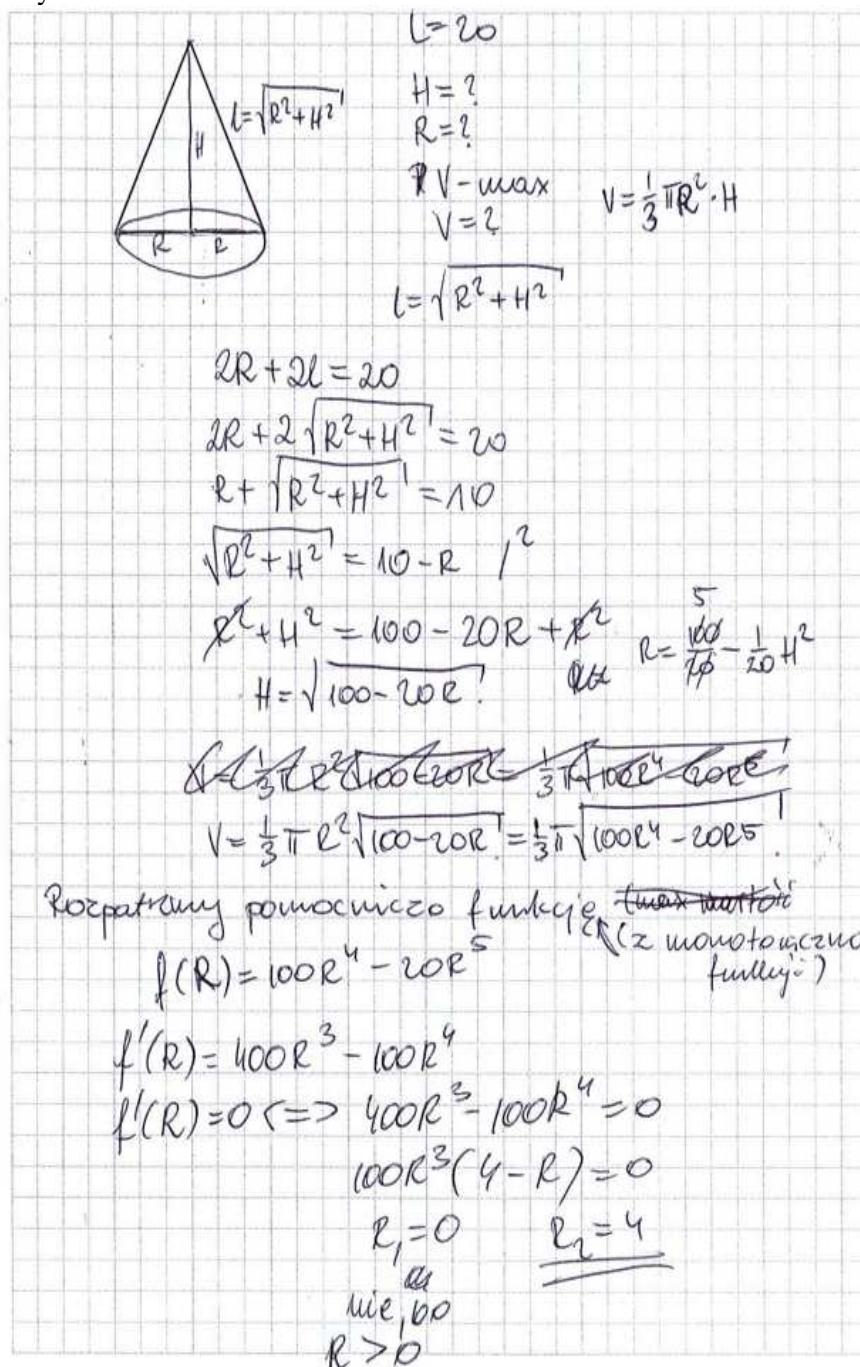 L=20
H=?
R=?
V-max
V=?
V=\frac{1}{3}πR²·H
l=√(R²+H²)
H
R R
l=√(R²+H²)
2R+2l=20
2R+2√(R²+H²)=20
R+√(R²+H²)=10
√(R²+H²)=10-R /²
R²+H²=100-20R+R²
H=√(100-20R)
R=\frac{100}{20}-\frac{1}{20}H²
5
V=\frac{1}{3}πR²√(100-20R)=\frac{1}{3}π√(100R⁴-20R⁵)
V=\frac{1}{3}πR²√(100-20R)=\frac{1}{3}π√(100R⁴-20R⁵)
Rozpatrzmy pomocniczo funkcję (max wartość
(z monotoniczno
funkcji)
f(R)=100R⁴-20R⁵
f'(R)=400R³-100R⁴
f'(R)=0<=> 400R³-100R⁴=0
100R³(4-R)=0
R₁=0 R₂=4
nie, bo
R>0